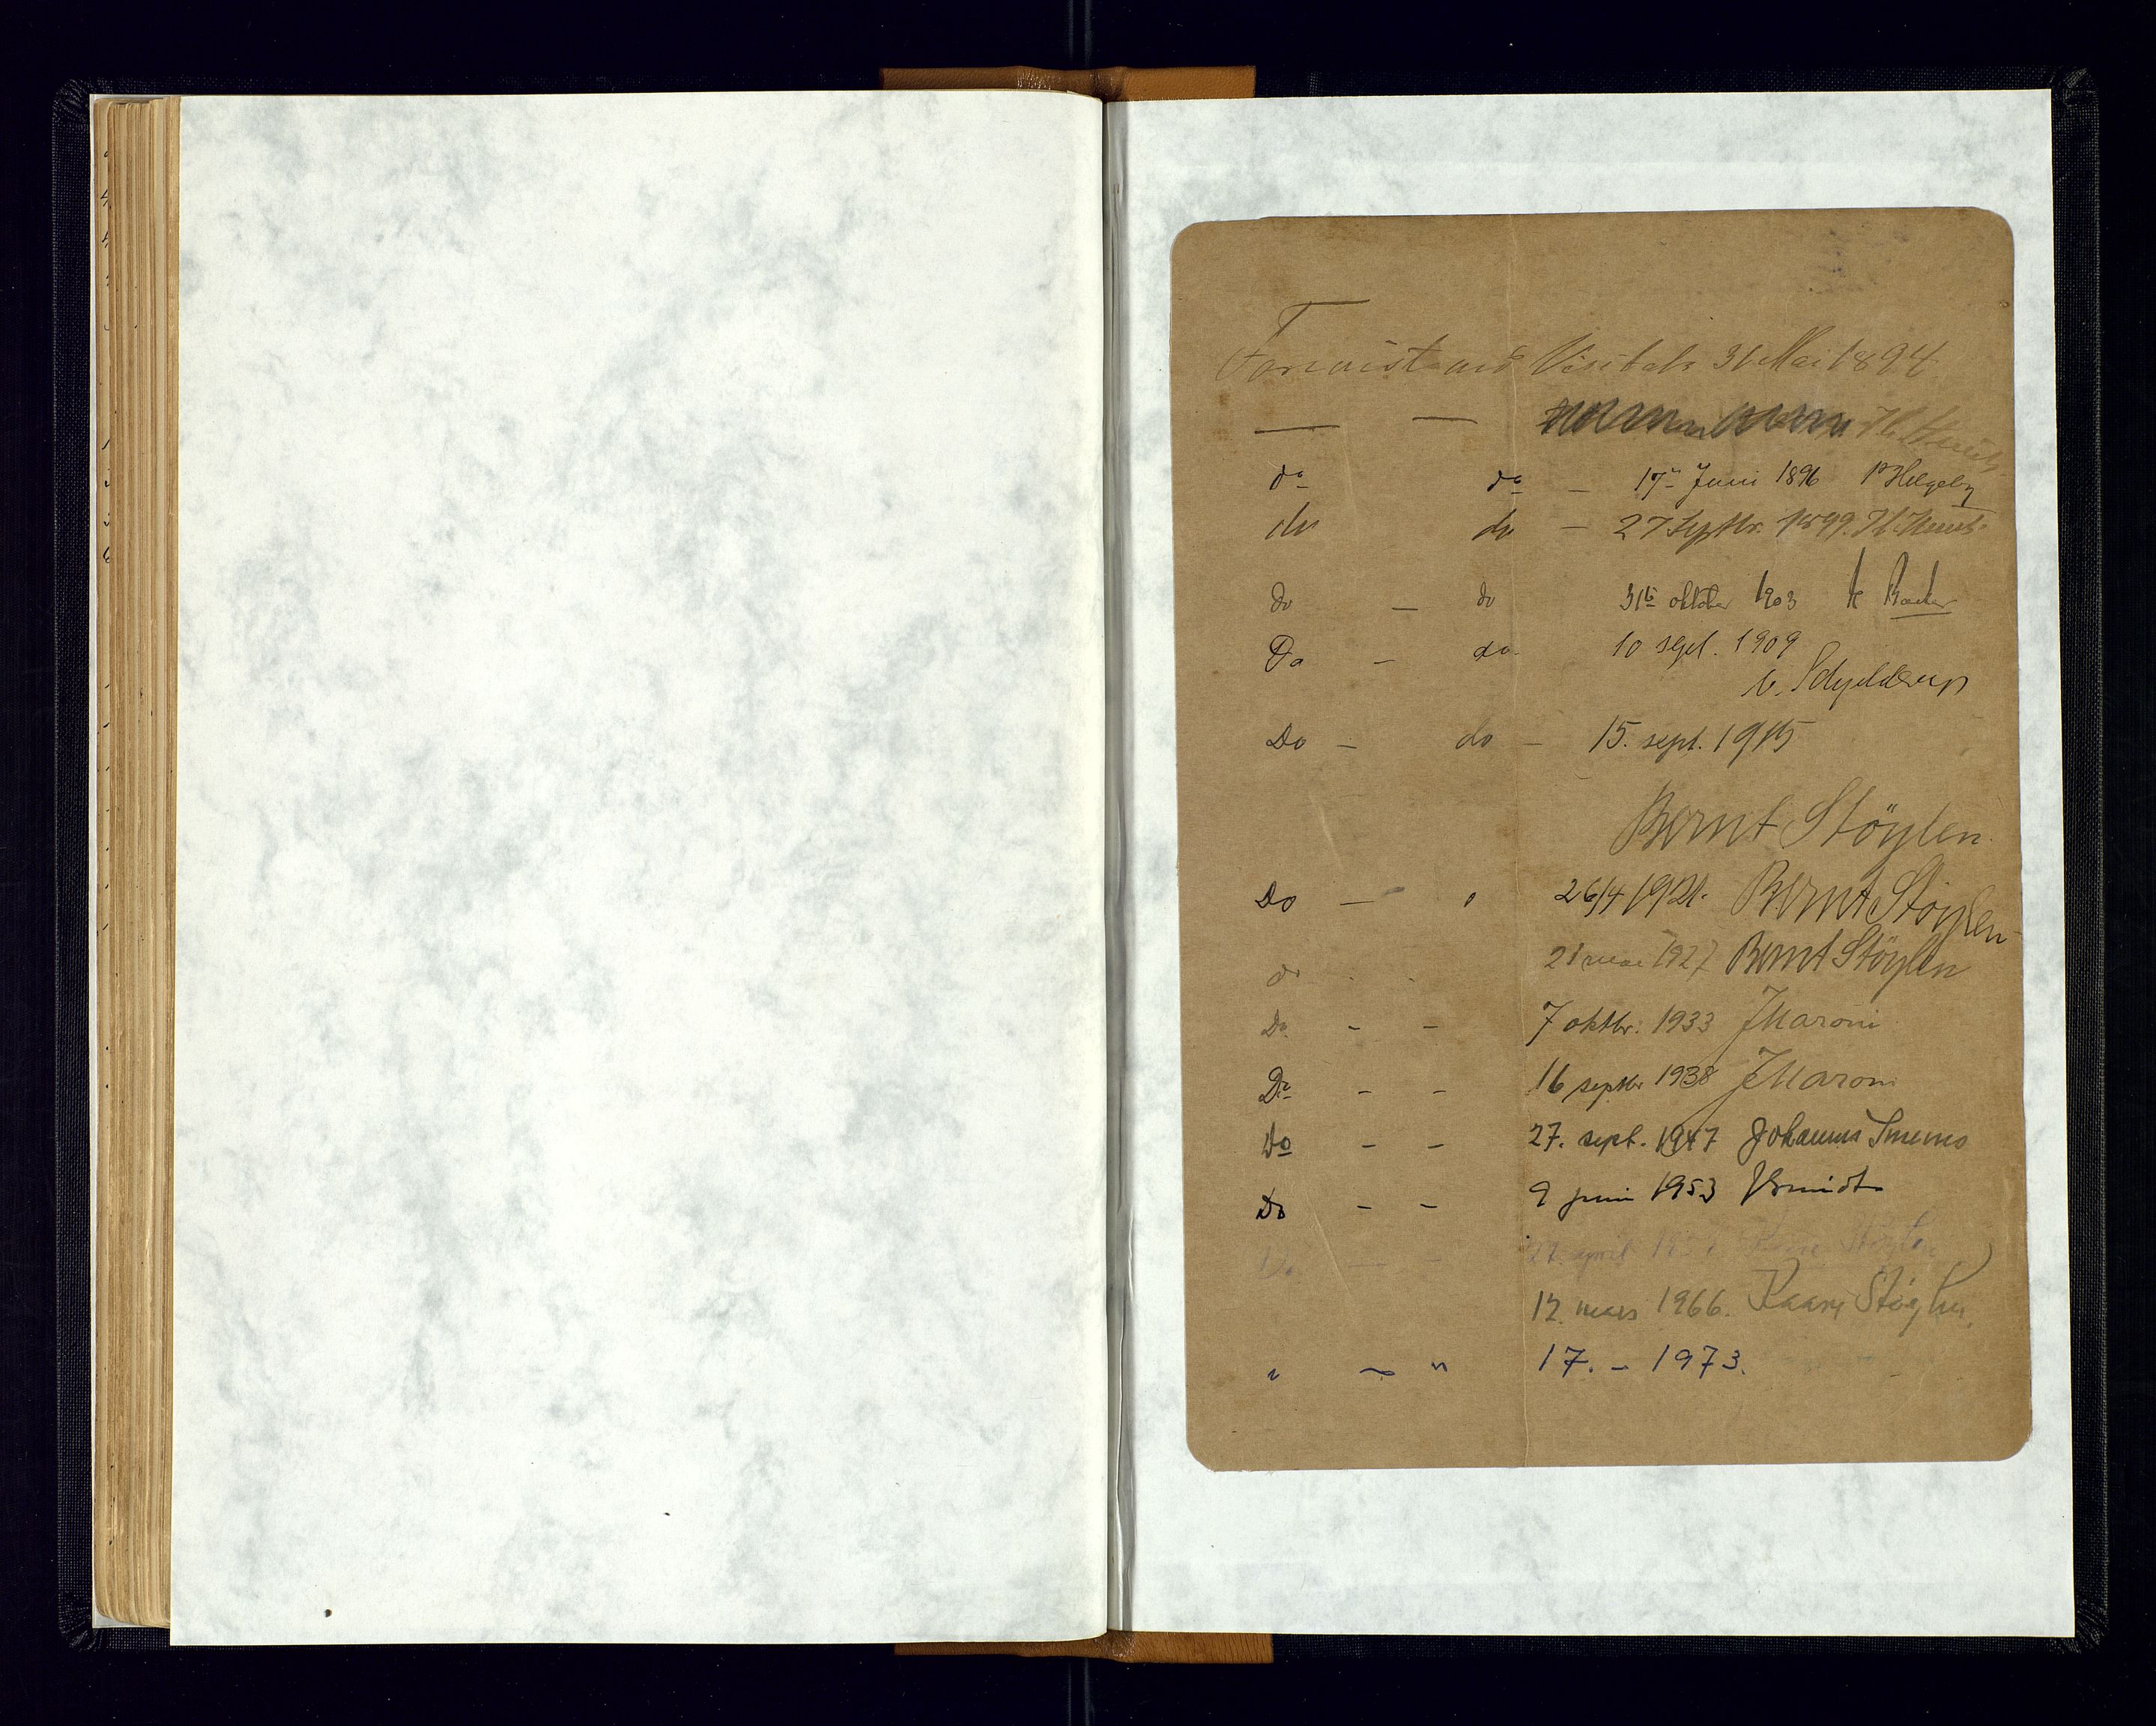 Forevist ved Visitats 31 Mai 1894
— —
do do — 17de Juni 1896 P Helgeby
do do — 27 Septbr. 1899. H.
do — do 31te oktober 1903
Do — do. 10 sept. 1909
Schjelderup
Do — do — 15. sept. 1915
Bernt Støylen.
Do — " 26/4 1921. Bernt Støylen
do - - 21 mai 1927 Bernt Støylen
Do. - - 7 oktbr. 1933 JMaroni
Do - - 16 septbr 1938 JMaroni
Do - - 27. sept. 1947 Johannes Smemo
Do - - 9 juni 1953 JSmidt
Do. — - 27. april Kaare Støylen
12. mars 1966. Kaare Støylen.
" — " 17. - 1973.